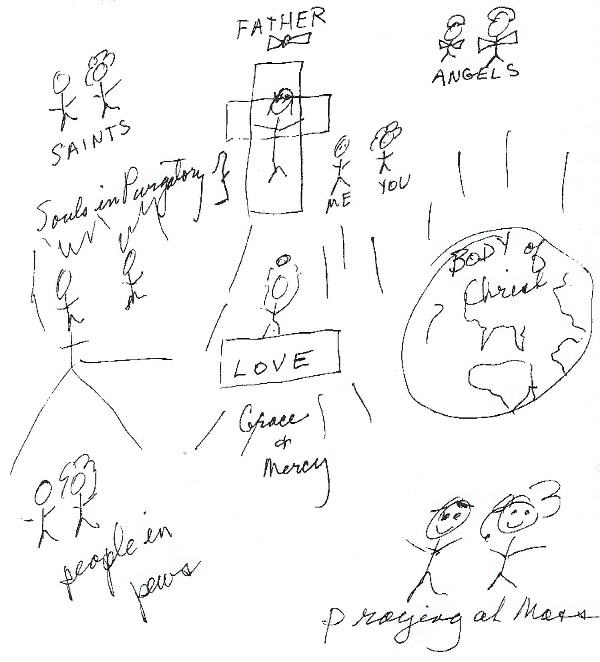 FATHER
ANGELS
SAINTS
Souls in Purgatory
ME
YOU
BODY of
Christ
LOVE
Grace
&
Mercy
people in
pews
praying at Mass